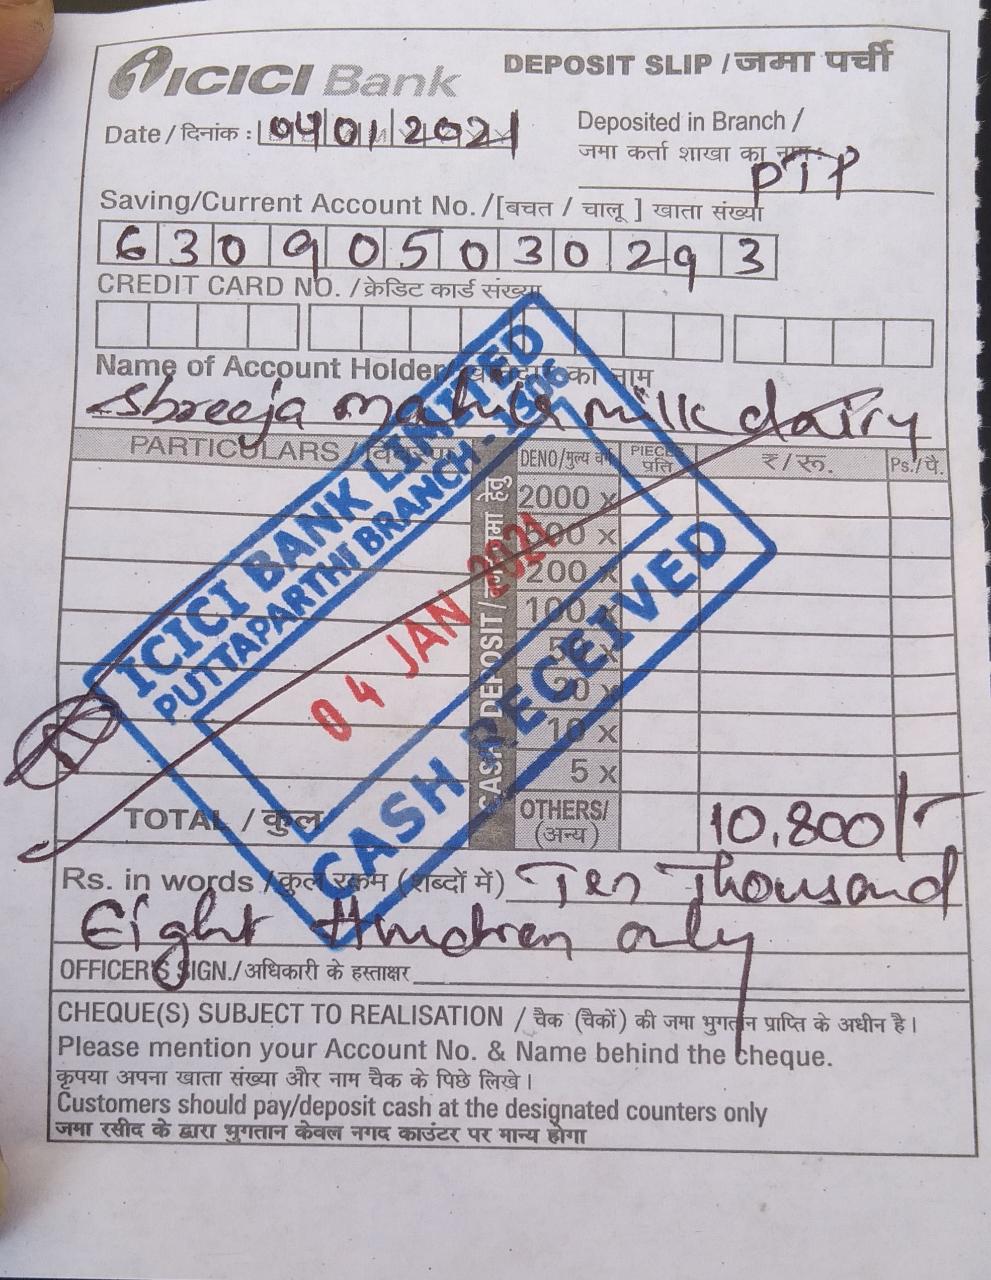 ICICI Bank
DEPOSIT SLIP / जमा पर्ची
Date / दिनांक : 04 01 2021
Deposited in Branch /
जमा कर्ता शाखा का नाम:
PTP
Saving/Current Account No. / [बचत / चालू ] खाता संख्या
6 3 0 9 0 5 0 3 0 2 9 3
CREDIT CARD NO. / क्रेडिट कार्ड संख्या
Name of Account Holder/ का नाम
Shreeja mahila milk dairy
PARTICULARS / DENO/मूल्य वर्ग PIECES प्रति ₹/रू. Ps./पै.
CASH DEPOSIT / जमा हेतु
2000 x
500 x
200 x
100 x
50 x
20 x
10 x
5 x
OTHERS/
(अन्य)
TOTAL / कुल 10,800/-
ICICI BANK LIMITED
PUTTAPARTHI BRANCH - 1506
04 JAN 2021
CASH RECEIVED
Rs. in words / कुल रकम (शब्दों में) Ten Thousand
Eight Hundren only
OFFICER'S SIGN./अधिकारी के हस्ताक्षर
CHEQUE(S) SUBJECT TO REALISATION / चैक (चैकों) की जमा भुगतान प्राप्ति के अधीन है।
Please mention your Account No. & Name behind the cheque.
कृपया अपना खाता संख्या और नाम चैक के पिछे लिखे।
Customers should pay/deposit cash at the designated counters only
जमा रसीद के द्वारा भुगतान केवल नगद काउंटर पर मान्य होगा